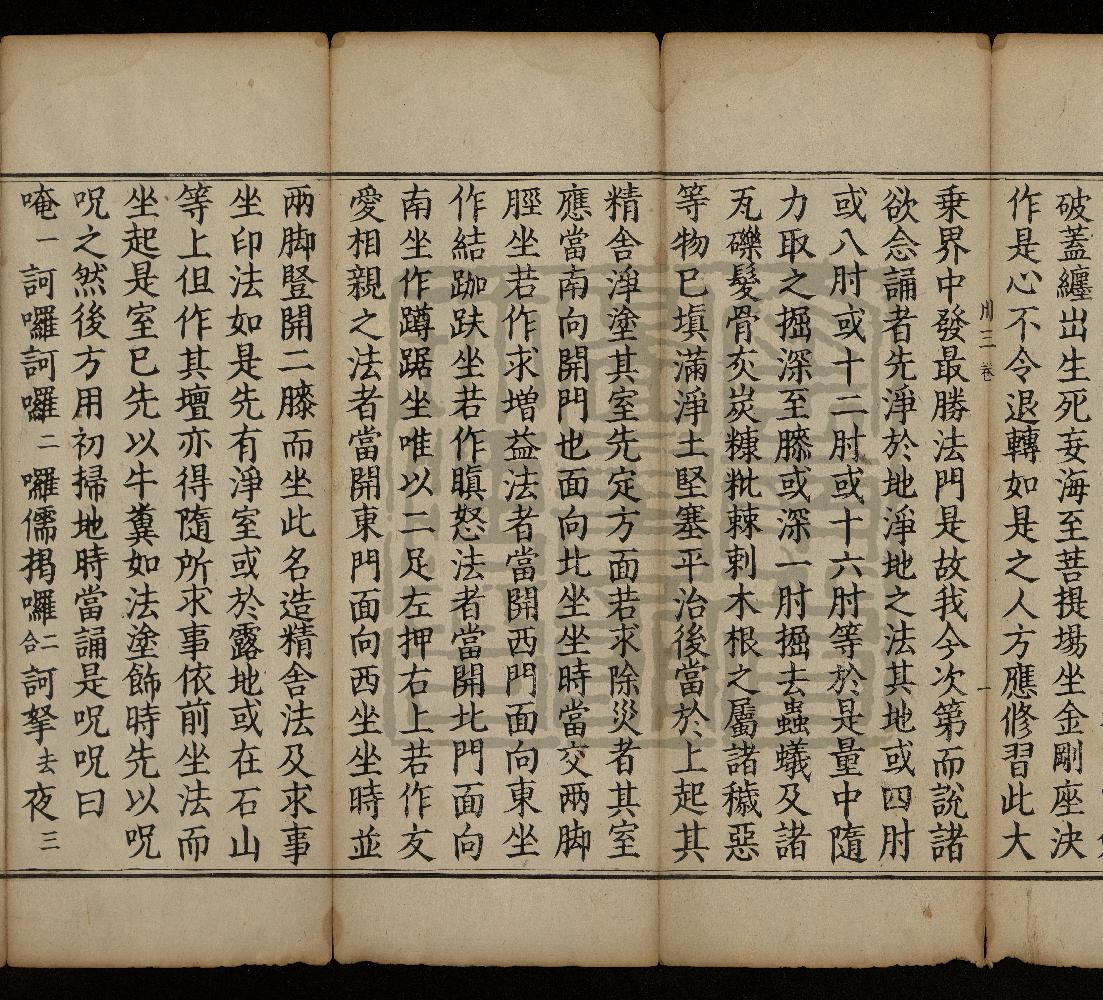 破蓋纏出生死妄海至菩提場坐金剛座決
作是心不令退轉如是之人方應修習此大
川三卷 一
乗界中發最勝法門是故我今次第而說諸
欲念誦者先淨於地淨地之法其地或四肘
或八肘或十二肘或十六肘等於是量中隨
力取之掘深至膝或深一肘掘去蟲蟻及諸
瓦礫髮骨灰炭糠粃棘刺木根之屬諸穢惡
等物已塡滿淨土堅塞平治後當於上起其
精舍淨塗其室先定方面若求除災者其室
應當南向開門也面向北坐坐時當交兩脚
脛坐若作求增益法者當開西門面向東坐
作結跏趺坐若作瞋怒法者當開北門面向
南坐作蹲踞坐唯以二足左押右上若作友
愛相親之法者當開東門面向西坐坐時並
兩脚豎開二膝而坐此名造精舍法及求事
坐印法如是先有淨室或於露地或在石山
等上但作其壇亦得隨所求事依前坐法而
坐起是室已先以牛糞如法塗飾時先以呪
呪之然後方用初掃地時當誦是呪呪曰
唵一訶囉訶囉二囉儒揭囉二合訶拏去夜三